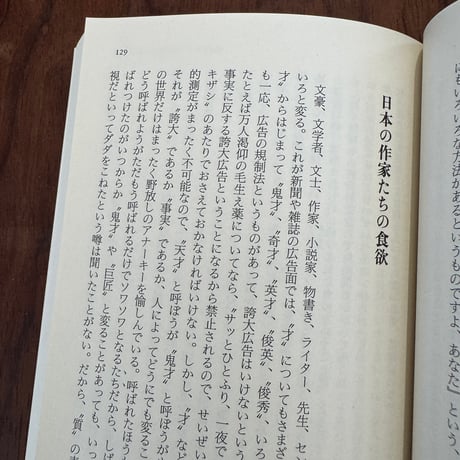 にもいろいろな方法があるというものですよ、あなた』という、
129
日本の作家たちの食欲
文豪、文学者、文士、作家、小説家、物書き、ライター、先生、セン
いろと変る。これが新聞や雑誌の広告面では、〝才〟についてもさまざ
才〟からはじまって〝鬼才〟、〝奇才〟、〝英才〟、〝俊英〟、〝俊秀〟、いろ
も一応、広告の規制法というものがあって、誇大広告はいけないという
たとえば万人渇仰の毛生え薬についてなら、〝サッとひとふり、一夜で
事実に反する誇大広告ということになるから禁止されるので、せいぜい
キザシ〟のあたりでおさえておかなければいけない。しかし、〝才〟など
的測定がまったく不可能なので、〝天才〟と呼ぼうが〝鬼才〟と呼ぼうが
それが〝誇大〟であるか〝事実〟であるか、人によってどうにでも変るこ
の世界だけはまったく野放しのアナーキーを愉しんでいる。呼ばれたほう
どう呼ばれようがただもう呼ばれるだけでソワソワとなるたちだから、しば
ばれつけたのがいつからか〝鬼才〟や〝巨匠〟と変ることがあっても、いっ
視だといってダダをこねたという噂は聞いたことがない。だから、〝質〟の